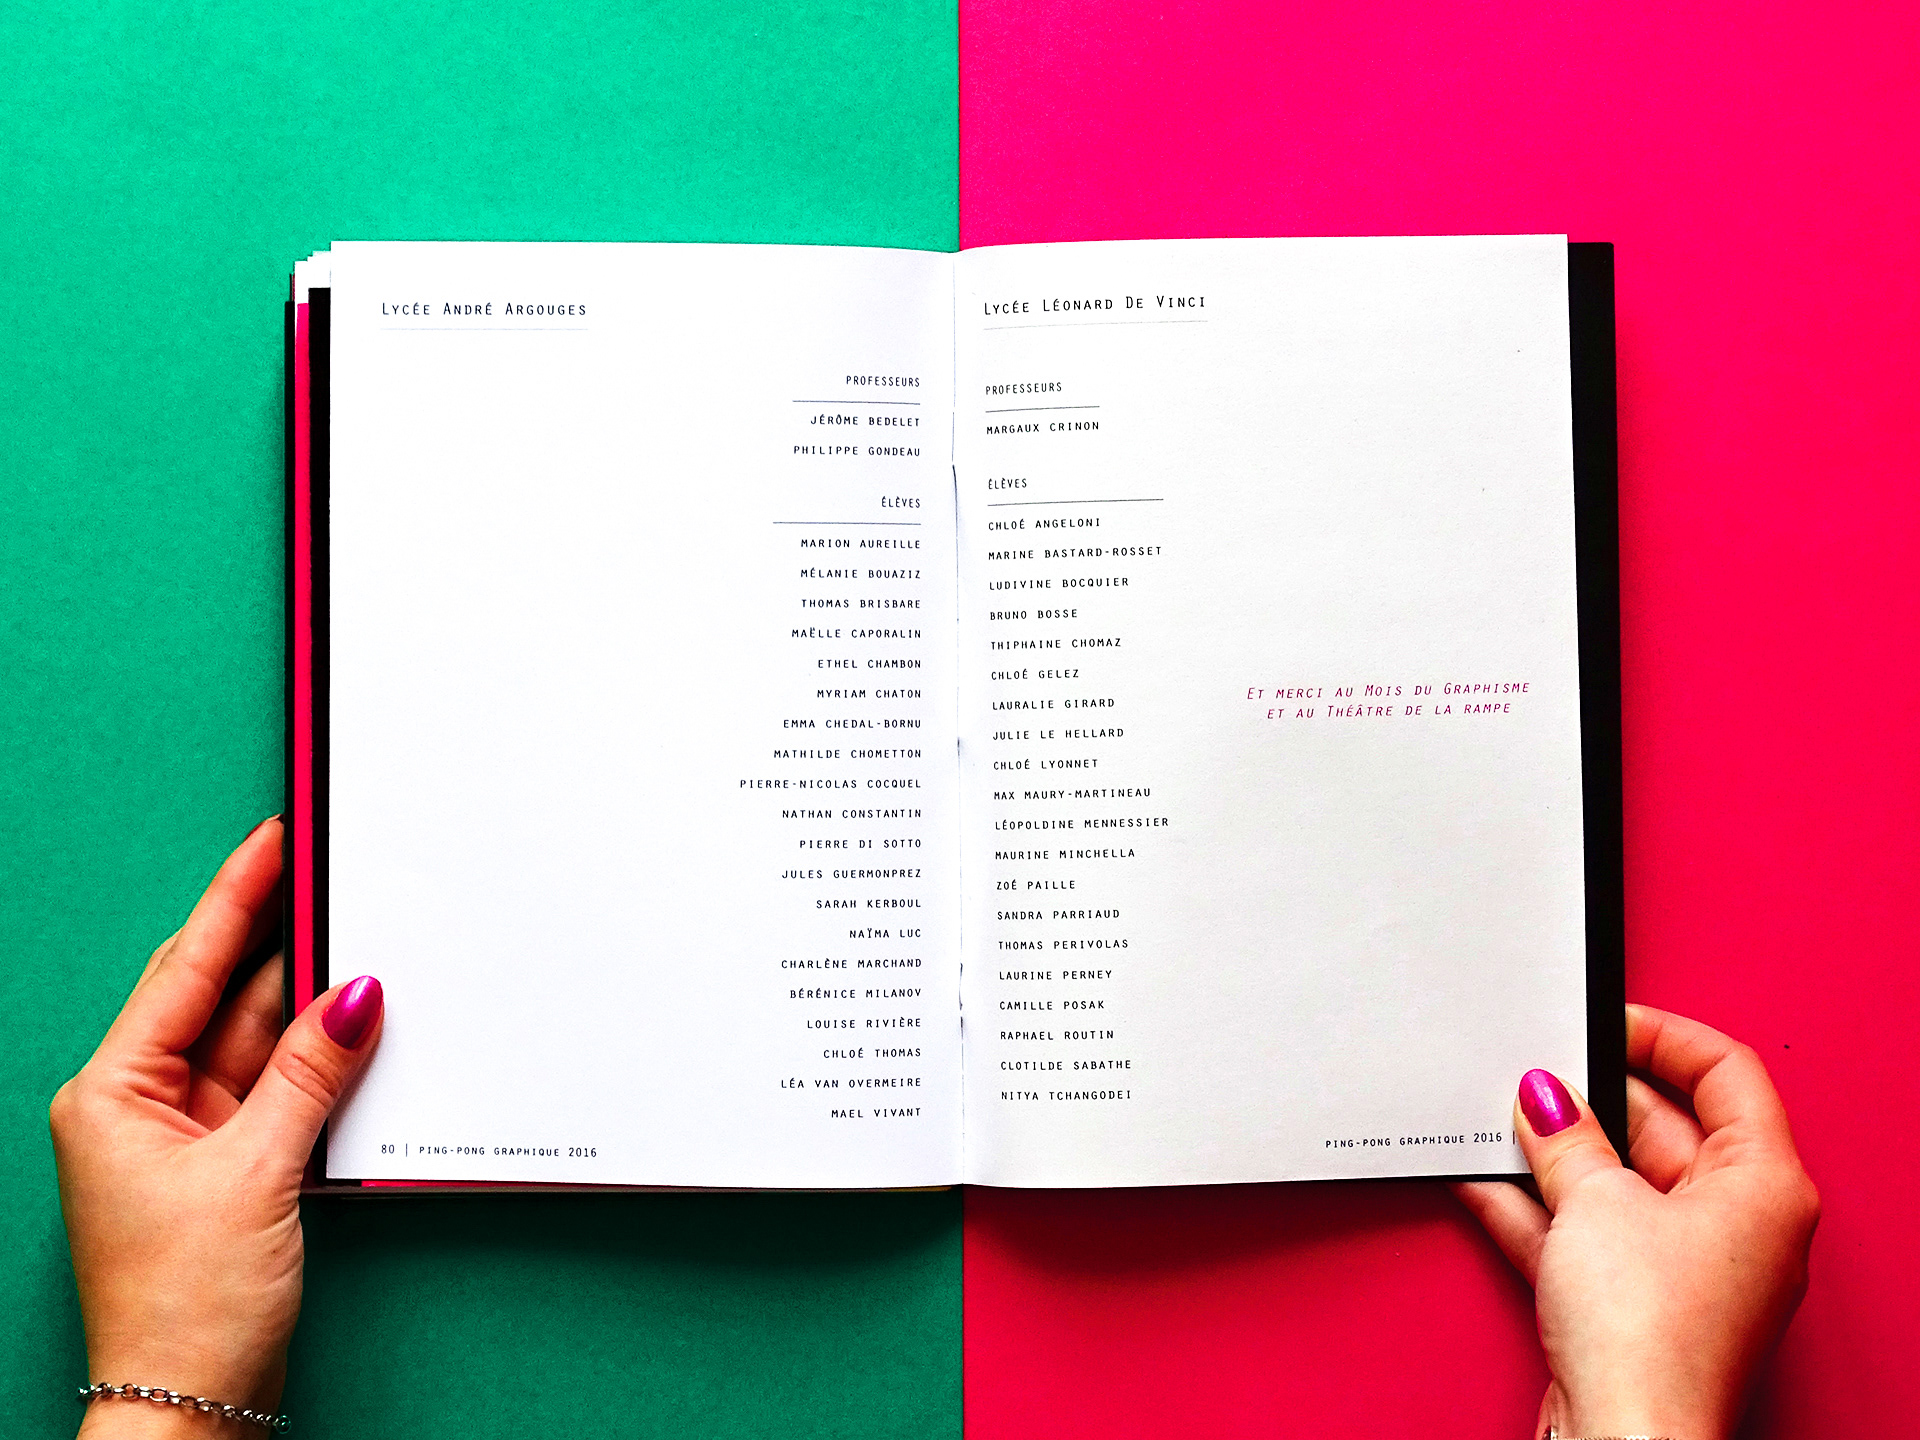 Lycée André Argouges
PROFESSEURS
JÉRÔME BEDELET
PHILIPPE GONDEAU
ÉLÈVES
MARION AUREILLE
MÉLANIE BOUAZIZ
THOMAS BRISBARE
MAËLLE CAPORALIN
ETHEL CHAMBON
MYRIAM CHATON
EMMA CHEDAL-BORNU
MATHILDE CHOMETTON
PIERRE-NICOLAS COCQUEL
NATHAN CONSTANTIN
PIERRE DI SOTTO
JULES GUERMONPREZ
SARAH KERBOUL
NAÏMA LUC
CHARLÈNE MARCHAND
BÉRÉNICE MILANOV
LOUISE RIVIÈRE
CHLOÉ THOMAS
LÉA VAN OVERMEIRE
MAEL VIVANT
80 | PING-PONG GRAPHIQUE 2016
Lycée Léonard De Vinci
PROFESSEURS
MARGAUX CRINON
ÉLÈVES
CHLOÉ ANGELONI
MARINE BASTARD-ROSSET
LUDIVINE BOCQUIER
BRUNO BOSSE
THIPHAINE CHOMAZ
CHLOÉ GELEZ
LAURALIE GIRARD
JULIE LE HELLARD
CHLOÉ LYONNET
MAX MAURY-MARTINEAU
LÉOPOLDINE MENNESSIER
MAURINE MINCHELLA
ZOÉ PAILLE
SANDRA PARRIAUD
THOMAS PERIVOLAS
LAURINE PERNEY
CAMILLE POSAK
RAPHAEL ROUTIN
CLOTILDE SABATHE
NITYA TCHANGODEI
Et merci au Mois du Graphisme
et au Théâtre de la rampe
PING-PONG GRAPHIQUE 2016 |